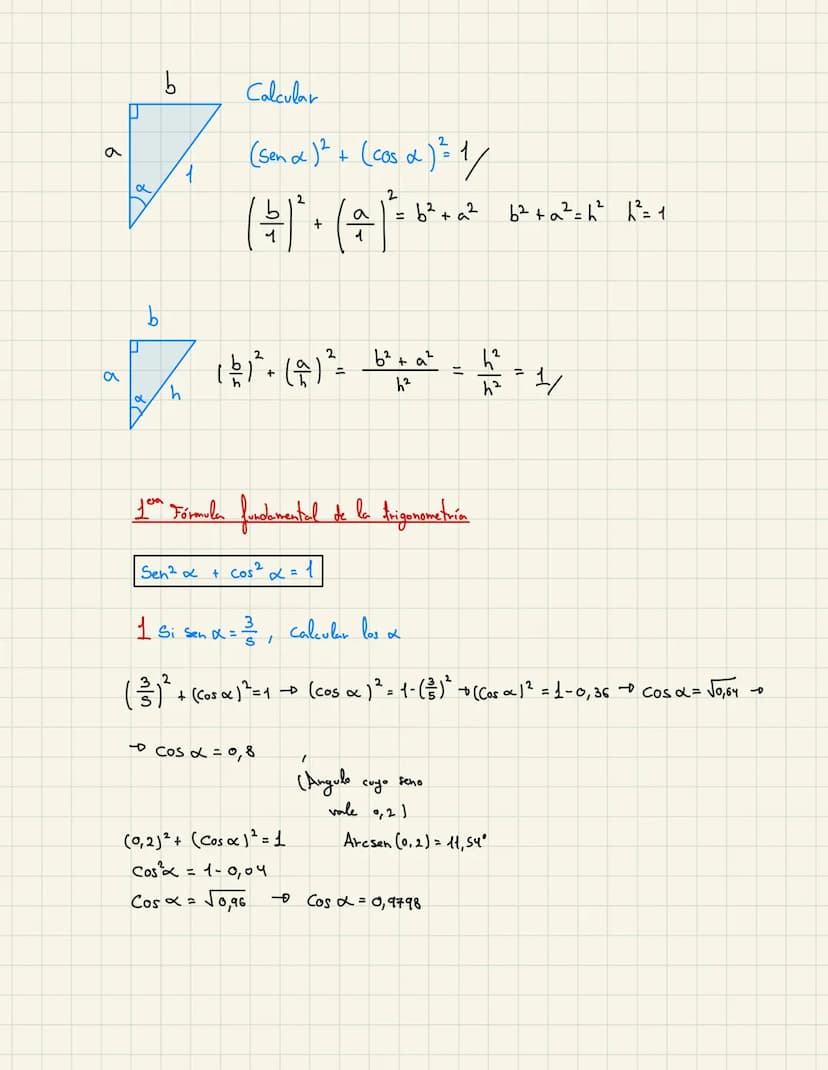 b
Calcular
a
(Sen α)² + (cos α)² = 1//
α
1
(b/1)² + (a/1)² = b² + a² b² + a² = h² h² = 1
b
a
(b/h)² + (a/h)² = (b² + a²)/h² = h²/h² = 1//
α
h
1era Fórmula fundamental de la trigonometría
Sen² α + cos² α = 1
1 Si sen α = 3/5, calcular los α
(3/5)² + (cos α)² = 1 → (cos α)² = 1 - (3/5)² → (cos α)² = 1 - 0,36 → cos α = √0,64 →
→ cos α = 0,8
(Ángulo cuyo seno
vale 0,2)
(0,2)² + (cos α)² = 1 Arcsen (0,2) = 11,54°
Cos²α = 1 - 0,04
Cos α = √0,96 → Cos α = 0,9798